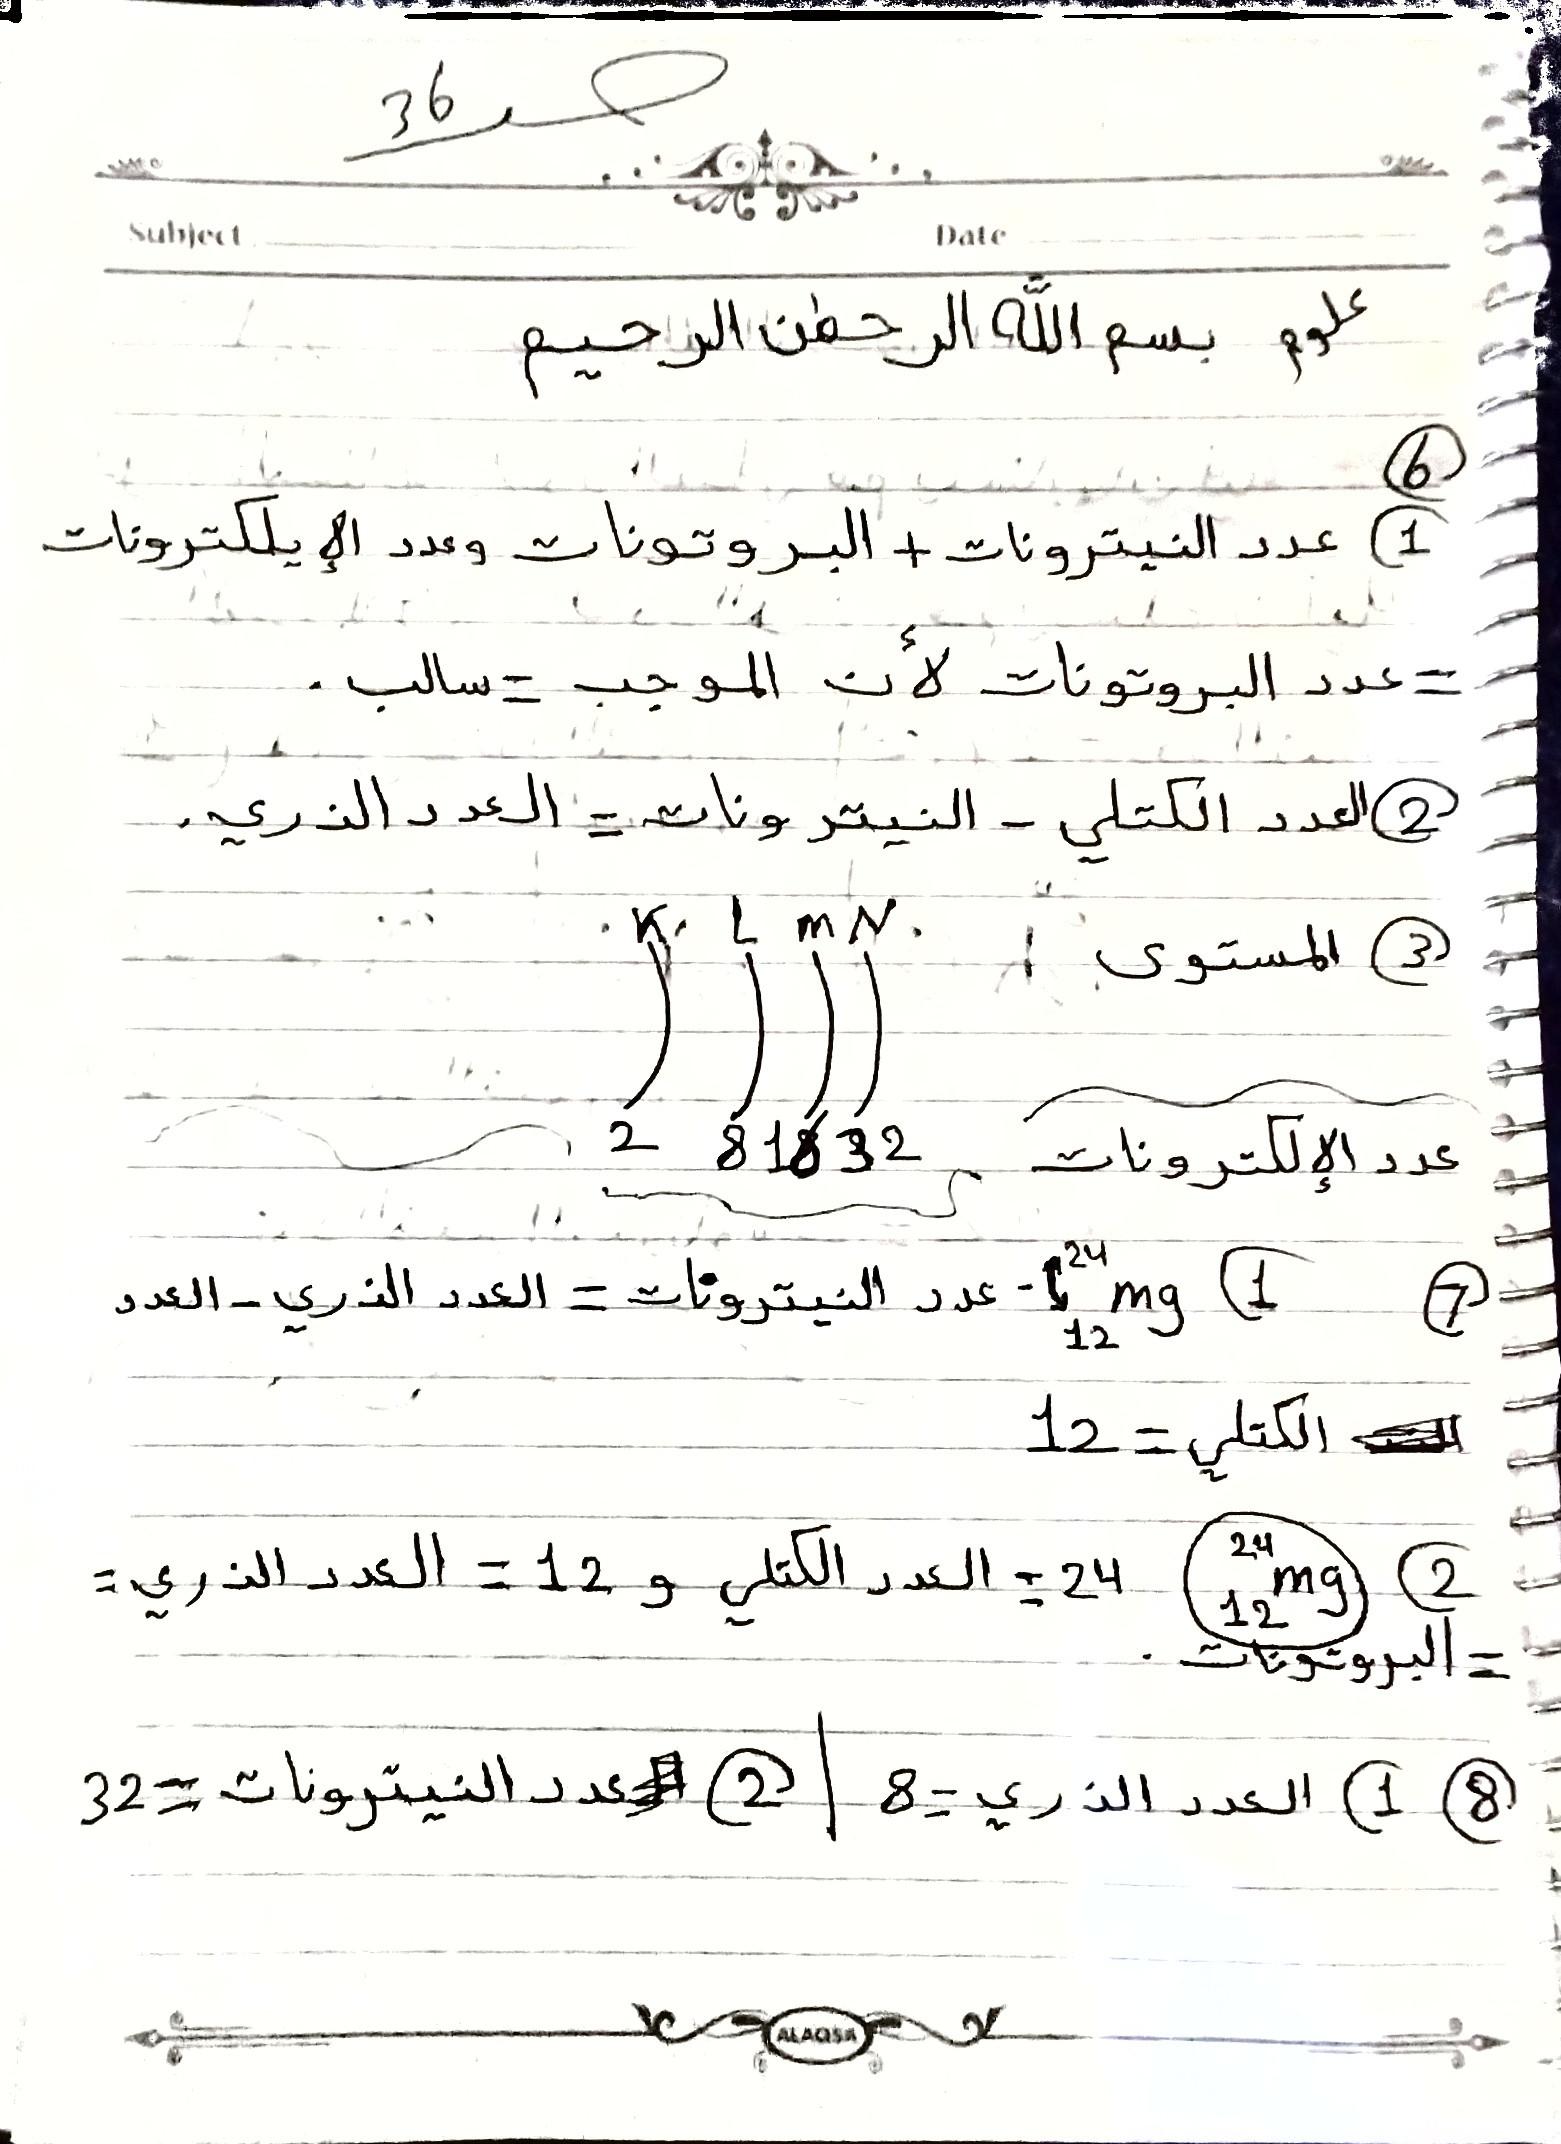 صـ 36
Subject Date
علوم بسم الله الرحمٰن الرحيم
6
1) عدد النيترونات + البروتونات وعدد الإيلكترونات
= عدد البروتونات لأن الموجب = سالب.
2) العدد الكتلي - النيترونات = العدد الذري.
3) المستوى K L m N
عدد الإلكترونات 2 8 18 32
7) 1) 24 mg 12 - عدد النيترونات = العدد الذري - العدد
الكتلي = 12
2) 24 mg 12 24 = العدد الكتلي و 12 = العدد الذري =
= البروتونات.
8) 1) العدد الذري = 8 | 2) عدد النيترونات = 32
ALAQSA